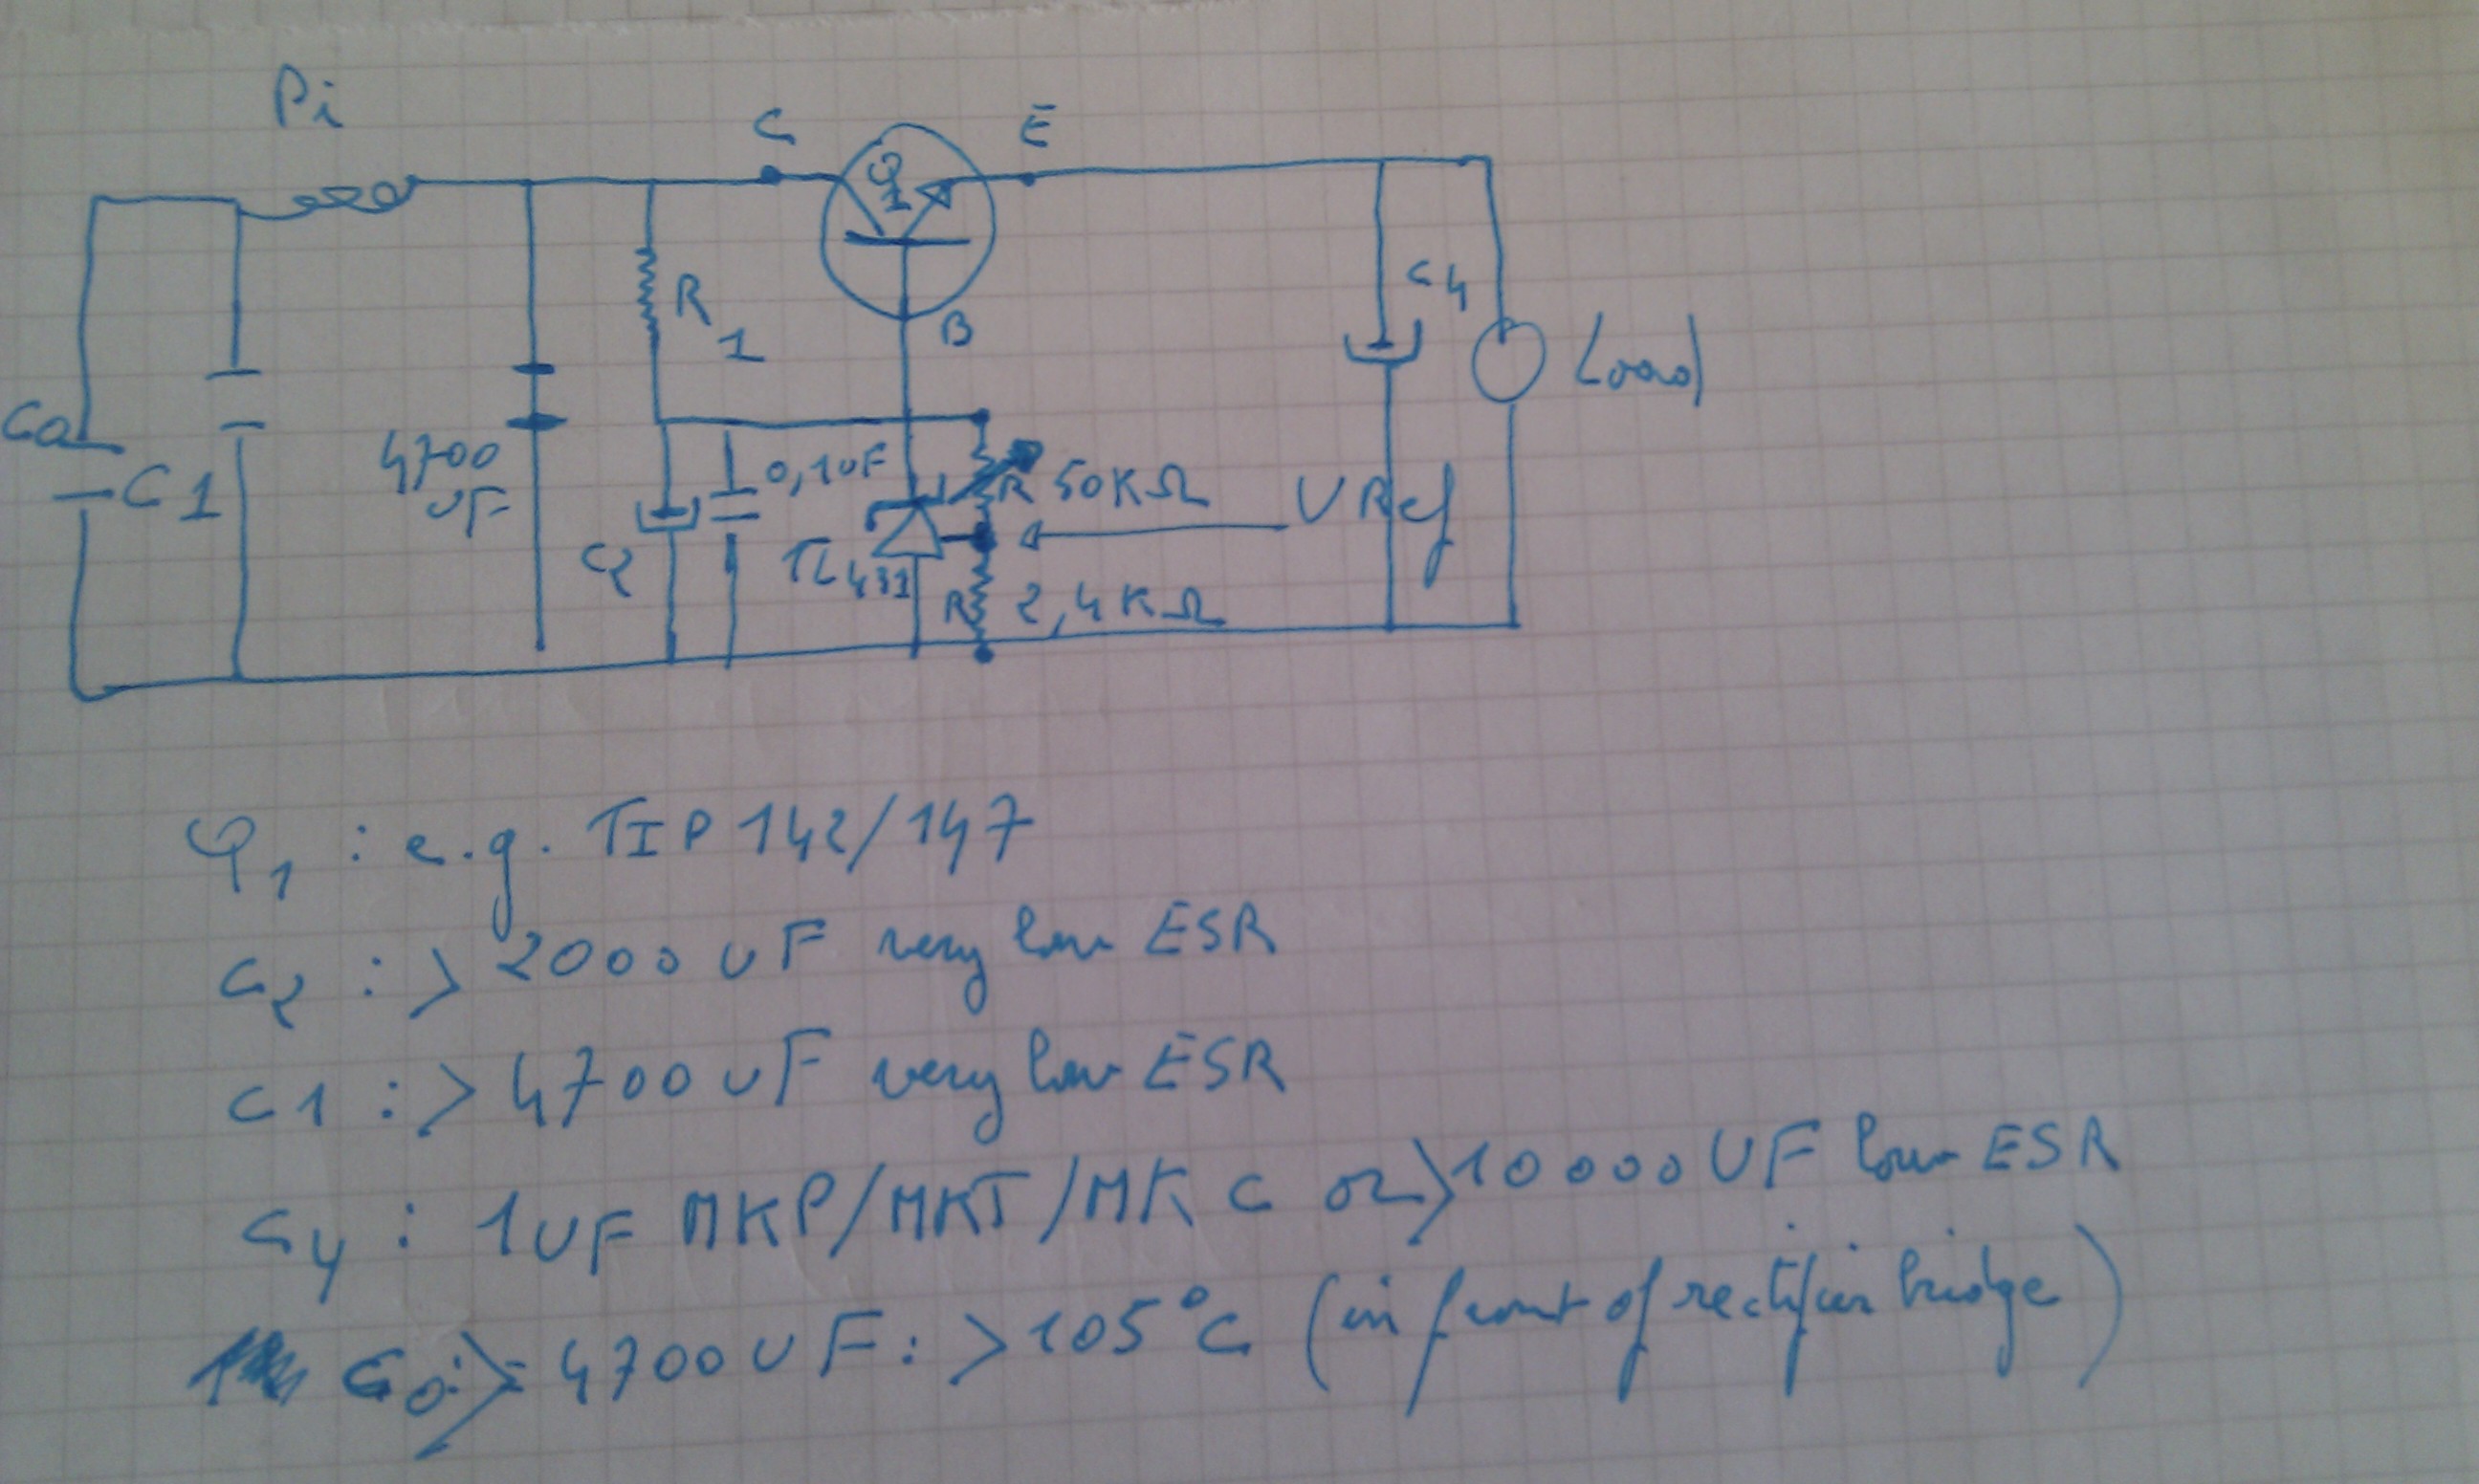 Pi
C
E
Q1
R1
B
C4
Load
Co
C1
4700
uF
0,1uF
R 50KΩ
URef
C2
TL431
R 2,4KΩ
Q1 : e.g. TIP 142/147
C2 : > 2000 uF very low ESR
C1 : > 4700 uF very low ESR
C4 : 1uF MKP/MKT/MKC or >10000UF low ESR
Co : > 4700 uF : > 105°C (in front of rectifier bridge)